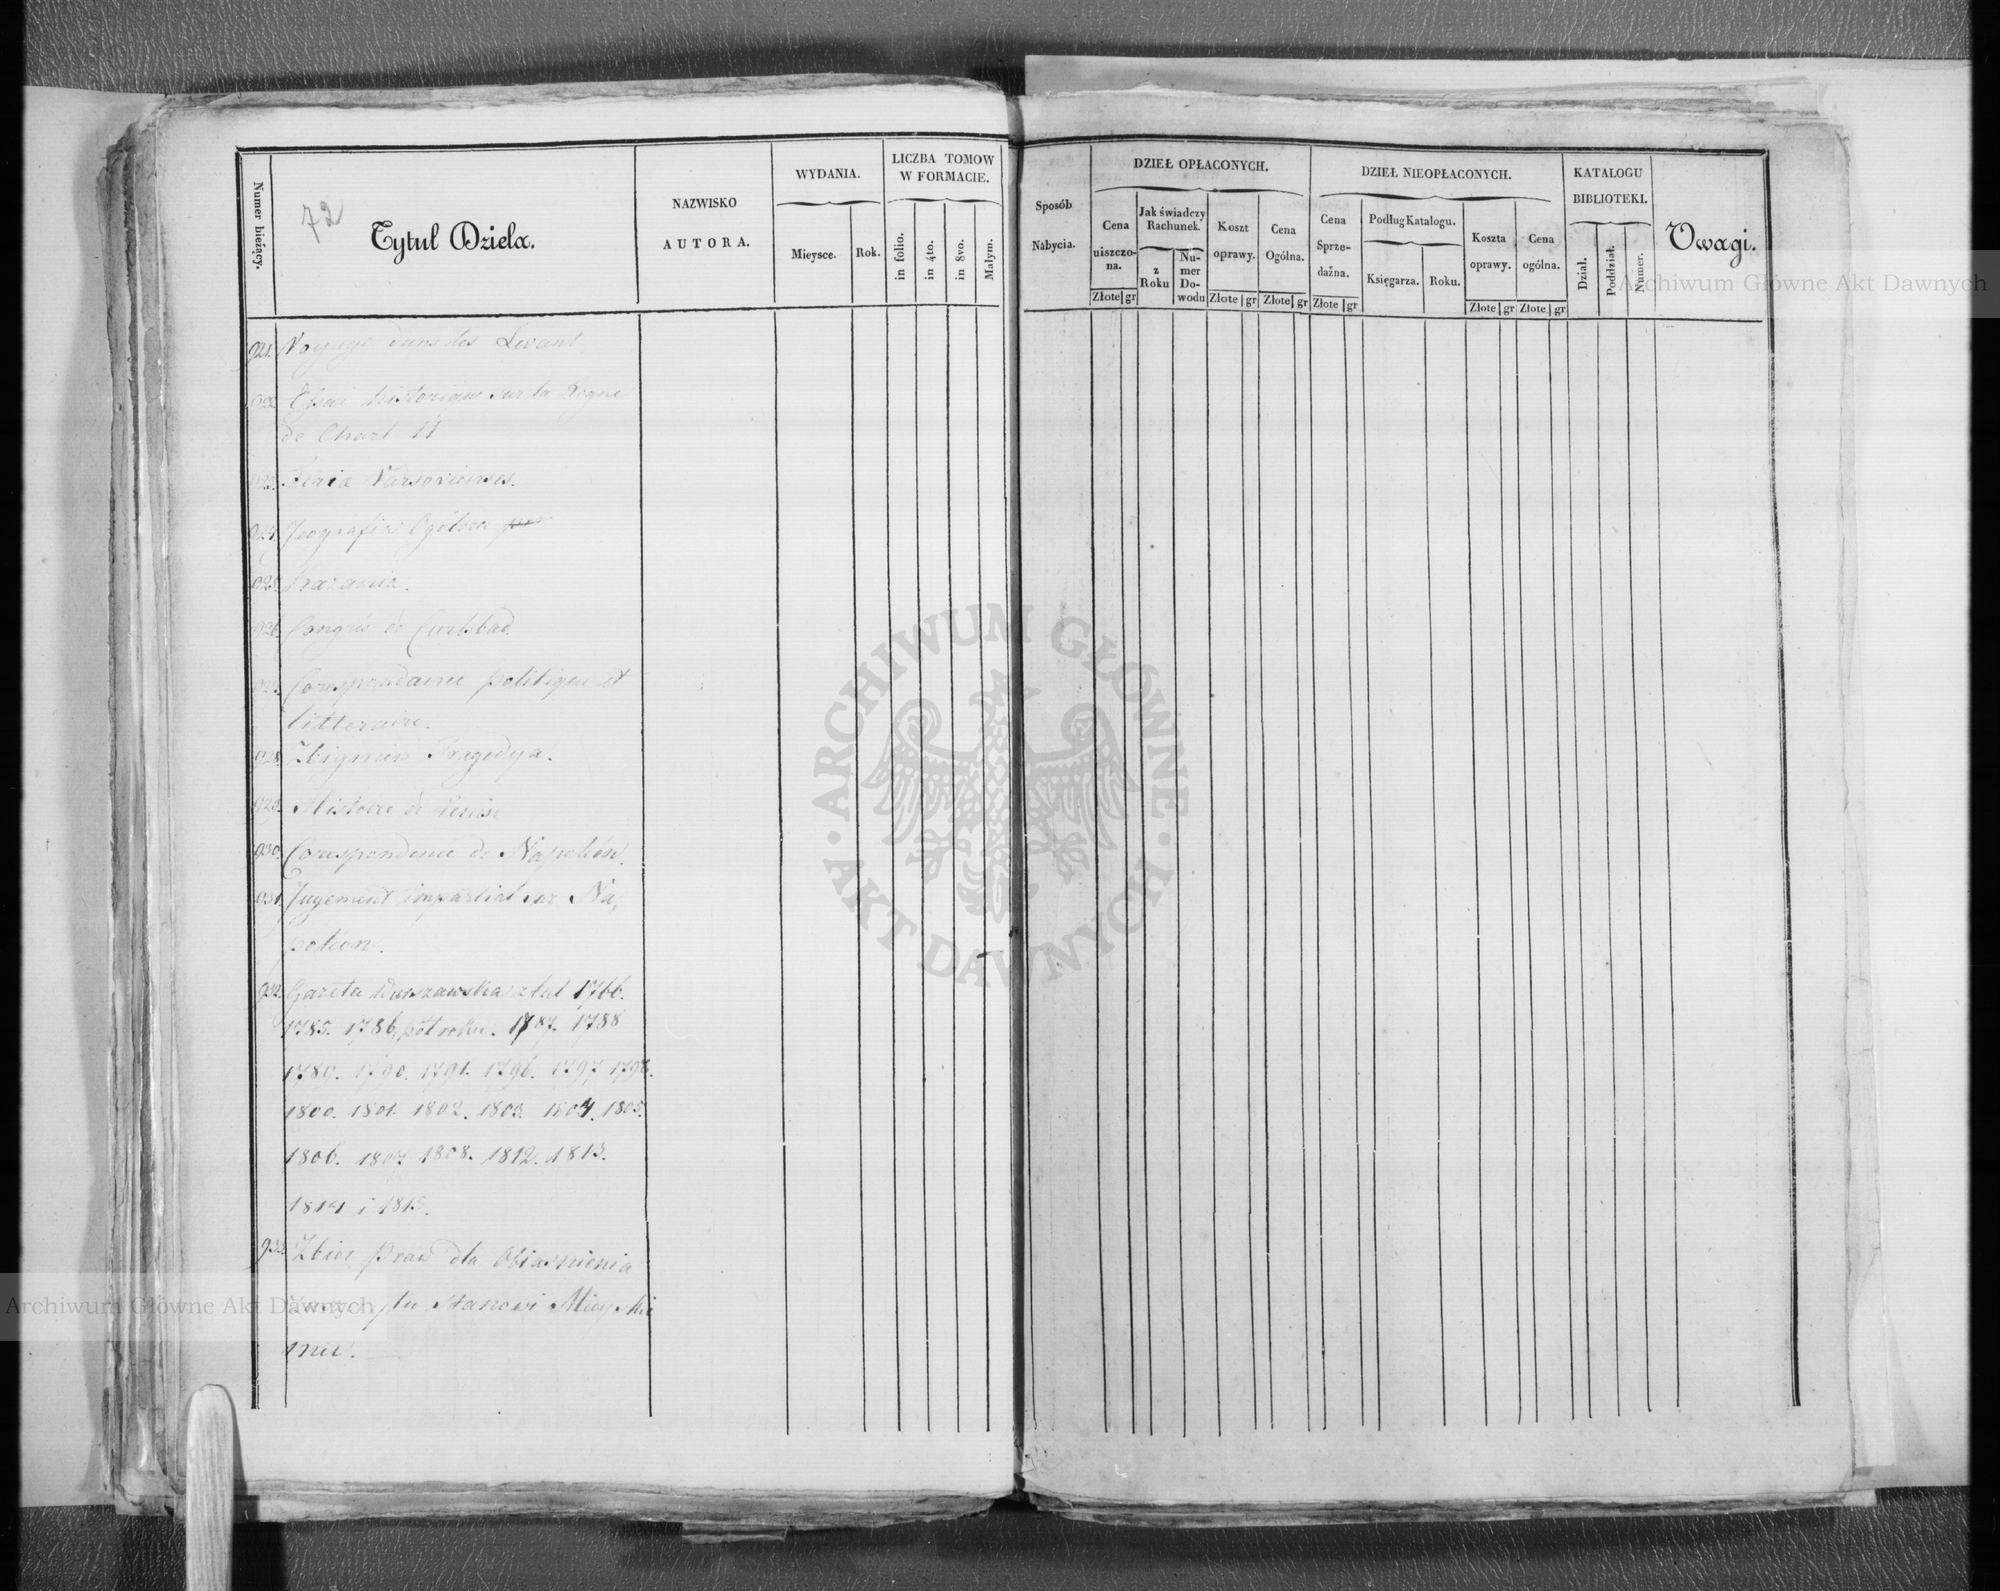 72
Numer bieżący.
Tytuł Dzieła.
NAZWISKO
AUTORA.
WYDANIA.
Mieysce.
Rok.
LICZBA TOMOW
W FORMACIE.
in folio.
in 4to.
in 8vo.
Małym.
Sposób
Nabycia.
DZIEŁ OPŁACONYCH.
Cena
uiszczo-
na.
Złote gr
Jak świadczy
Rachunek.
z
Roku
Nu-
mer
Do-
wodu
Koszt
oprawy.
Złote gr
Cena
Ogólna.
Złote gr
DZIEŁ NIEOPŁACONYCH.
Cena
Sprze-
daźna.
Złote gr
Podług Katalogu.
Księgarza.
Roku.
Koszta
oprawy.
Złote gr
Cena
ogólna.
Złote gr
KATALOGU
BIBLIOTEKI.
Dział.
Poddział.
Numer.
Uwagi.
921. Voyage dans les Levant
922. Essai historique sur la Regne
de Charl II
923. Feriæ Varsovienses.
924. Jeografia Ogólna
925. Kazania.
926. Congrès de Carlsbad.
927. Corespondance politique et
litteraire.
928. Zbigniew Tragedya.
929. Histoire de Venise
930. Corespondence de Napoléon.
931. Jugement impartial sur Na,
poleon.
932. Gazeta Warszawska z lat 1766.
1785. 1786, pół roku. 1787. 1788
1789. 1790. 1791. 1796. 1797 1798.
1800. 1801. 1802. 1803. 1804. 1805.
1806. 1807 1808. 1812. 1813.
1814 i 1815.
933. Zbior Praw dla Obiasnienia
Stanowi Mieyskie
mu.
Archiwum Główne Akt Dawnych
Archiwum Główne Akt Dawnych
ARCHIWUM GŁÓWNE · AKT DAWNYCH ·